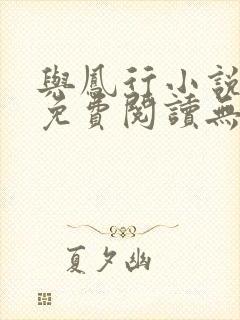 與鳳行小說
免費閱讀無
夏夕幽